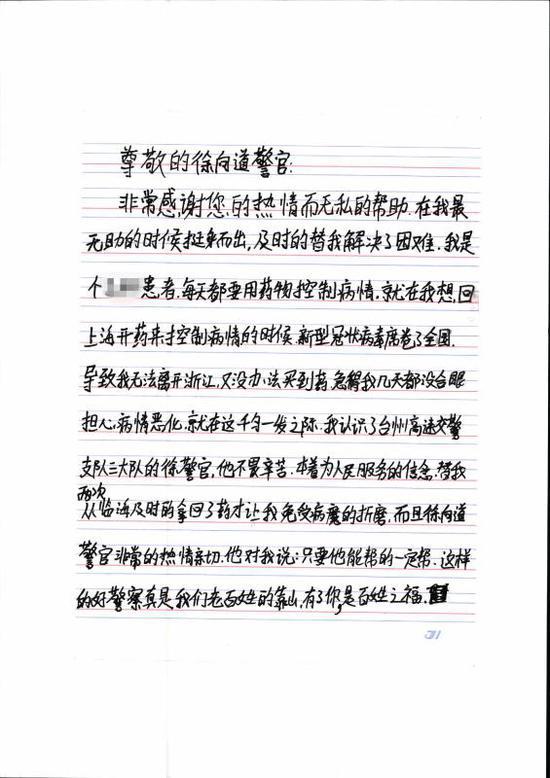 尊敬的徐向道警官:
非常感谢您的热情而无私的帮助.在我最
无助的时候挺身而出,及时的替我解决了困难.我是
个 患者.每天都要用药物控制病情.就在我想回
上海开药来控制病情的时候.新型冠状病毒席卷了全国.
导致我无法离开浙江,又没办法买到药.急得我几天都没合眼
担心病情恶化.就在这千钧一发之际.我认识了台州高速交警
支队三大队的徐警官,他不畏辛苦.本着为人民服务的信念.替我
两次
从临海及时的拿回了药才让我免受病魔的折磨.而且徐向道
警官非常的热情亲切.他对我说:只要他能帮的一定帮.这样
的好警察真是我们老百姓的靠山,有了你,是百姓之福.